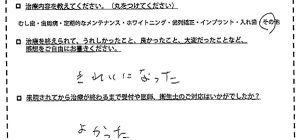 □ 治療内容を教えてください。(丸をつけてください)
むし歯・歯周病・定期的なメンテナンス・ホワイトニング・歯列矯正・インプラント・入れ歯・その他
□ 治療を終えられて、うれしかったこと、良かったこと、大変だったことなど、
感想をご自由にお書きください。
きれいになった
□ 来院されてから治療が終わるまで受付や医師、衛生士のご対応はいかがでしたか?
よかった